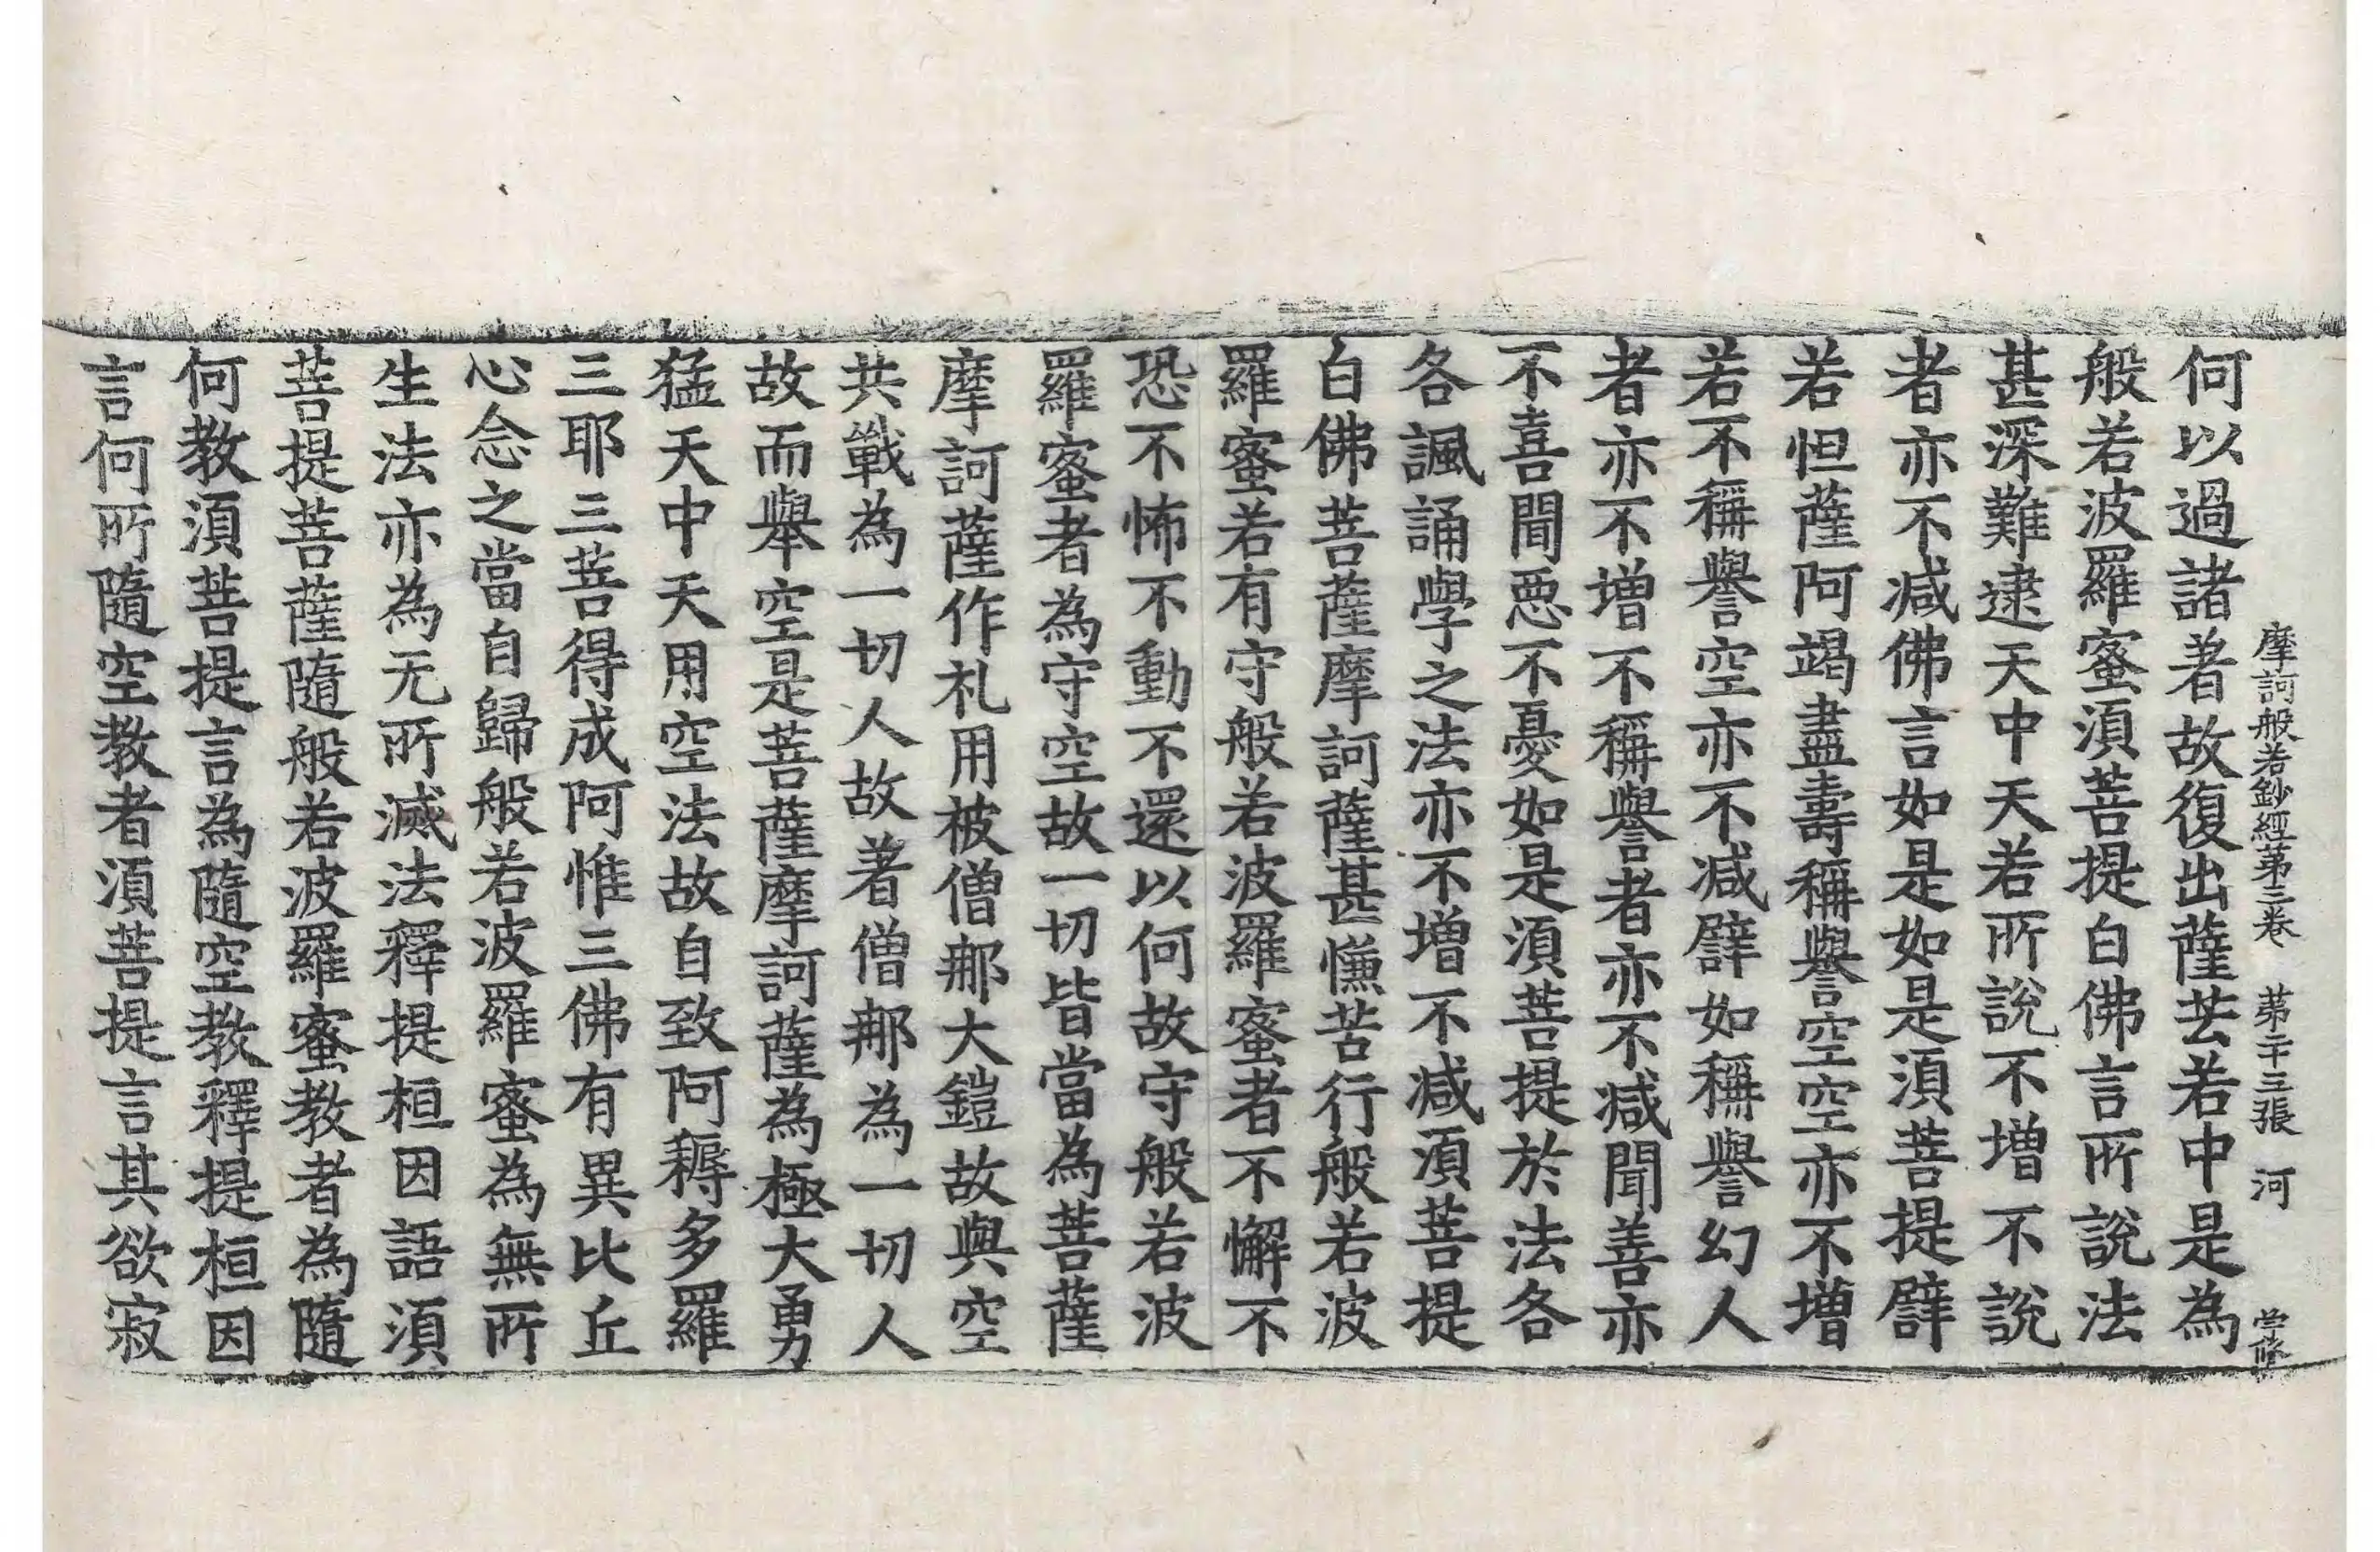 摩訶般若鈔經第三卷　第二十三張　河
何以過諸著故復出薩芸若中是為
般若波羅蜜須菩提白佛言所說法
甚深難逮天中天若所說不增不說
者亦不减佛言如是如是須菩提譬
若怛薩阿竭盡壽稱譽空空亦不增
若不稱譽空亦不减譬如稱譽幻人
者亦不增不稱譽者亦不减聞善亦
不喜聞惡不憂如是須菩提於法各
各諷誦學之法亦不增不减須菩提
白佛菩薩摩訶薩甚懃苦行般若波
羅蜜若有守般若波羅蜜者不懈不
恐不怖不動不還以何故守般若波
羅蜜者為守空故一切皆當為菩薩
摩訶薩作礼用被僧那大鎧故與空
共戰為一切人故著僧那為一切人
故而舉空是菩薩摩訶薩為極大勇
猛天中天用空法故自致阿耨多羅
三耶三菩得成阿惟三佛有異比丘
心念之當自歸般若波羅蜜為無所
生法亦為无所滅法釋提桓因語須
菩提菩薩隨般若波羅蜜教者為隨
何教須菩提言為隨空教釋提桓因
言何所隨空教者須菩提言其欲寂